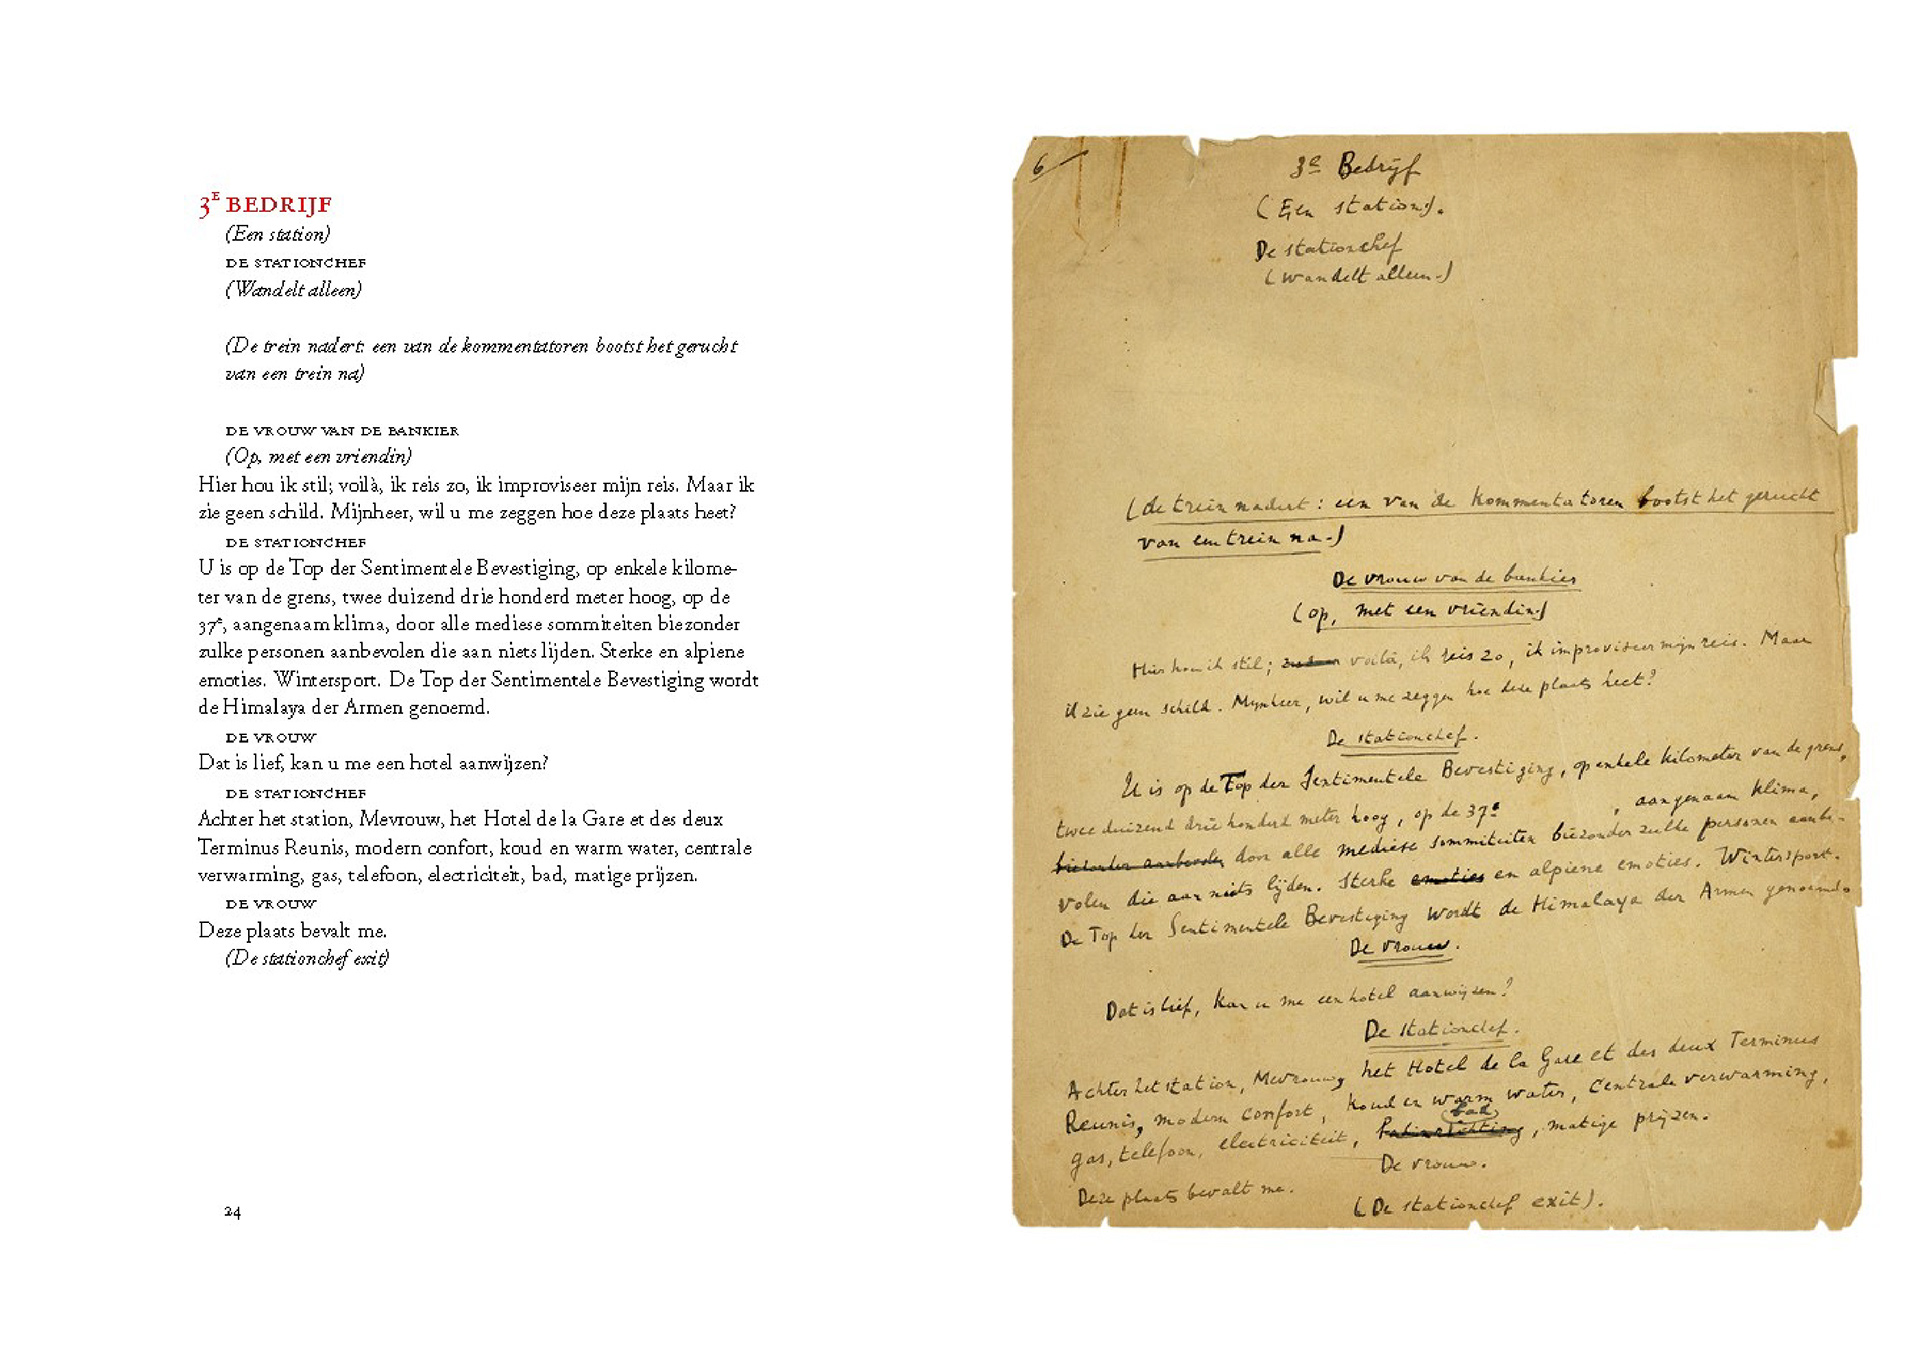 3E BEDRIJF
(Een station)
DE STATIONCHEF
(Wandelt alleen)
(De trein nadert: een van de kommentatoren bootst het gerucht
van een trein na)
DE VROUW VAN DE BANKIER
(Op, met een vriendin)
Hier hou ik stil; voilà, ik reis zo, ik improviseer mijn reis. Maar ik
zie geen schild. Mijnheer, wil u me zeggen hoe deze plaats heet?
DE STATIONCHEF
U is op de Top der Sentimentele Bevestiging, op enkele kilome-
ter van de grens, twee duizend drie honderd meter hoog, op de
37e, aangenaam klima, door alle mediese sommiteiten biezonder
zulke personen aanbevolen die aan niets lijden. Sterke en alpiene
emoties. Wintersport. De Top der Sentimentele Bevestiging wordt
de Himalaya der Armen genoemd.
DE VROUW
Dat is lief, kan u me een hotel aanwijzen?
DE STATIONCHEF
Achter het station, Mevrouw, het Hotel de la Gare et des deux
Terminus Reunis, modern confort, koud en warm water, centrale
verwarming, gas, telefoon, electriciteit, bad, matige prijzen.
DE VROUW
Deze plaats bevalt me.
(De stationchef exit)
24
6
3e Bedrijf
(Een station).
De stationchef
(wandelt alleen.)
(de trein nadert: een van de kommentatoren bootst het gerucht
van een trein na.)
De vrouw van de bankier
(op, met een vriendin)
Hier hou ik stil; voilà, ik reis zo, ik improviseer mijn reis. Maar
ik zie geen schild. Mynheer, wil u me zeggen hoe deze plaats heet?
De stationchef.
U is op de Top der Sentimentele Bevestiging, op enkele kilometer van de grens,
twee duizend drie honderd meter hoog, op de 37e, aangenaam klima,
biezonder aanbevolen door alle mediese sommiteiten biezonder zulke personen aanbe-
volen die aan niets lijden. Sterke emoties en alpiene emoties. Wintersport.
De Top der Sentimentele Bevestiging wordt de Himalaya der Armen genoemd.
De vrouw.
Dat is lief, kan u me een hotel aanwijzen?
De stationchef.
Achter het station, Mevrouw, het Hotel de la Gare et des deux Terminus
Reunis, modern confort, koud en warm water, centrale verwarming,
bad
gas, telefoon, electriciteit, badinrichting, matige prijzen.
De vrouw.
Deze plaats bevalt me.
(De stationchef exit).